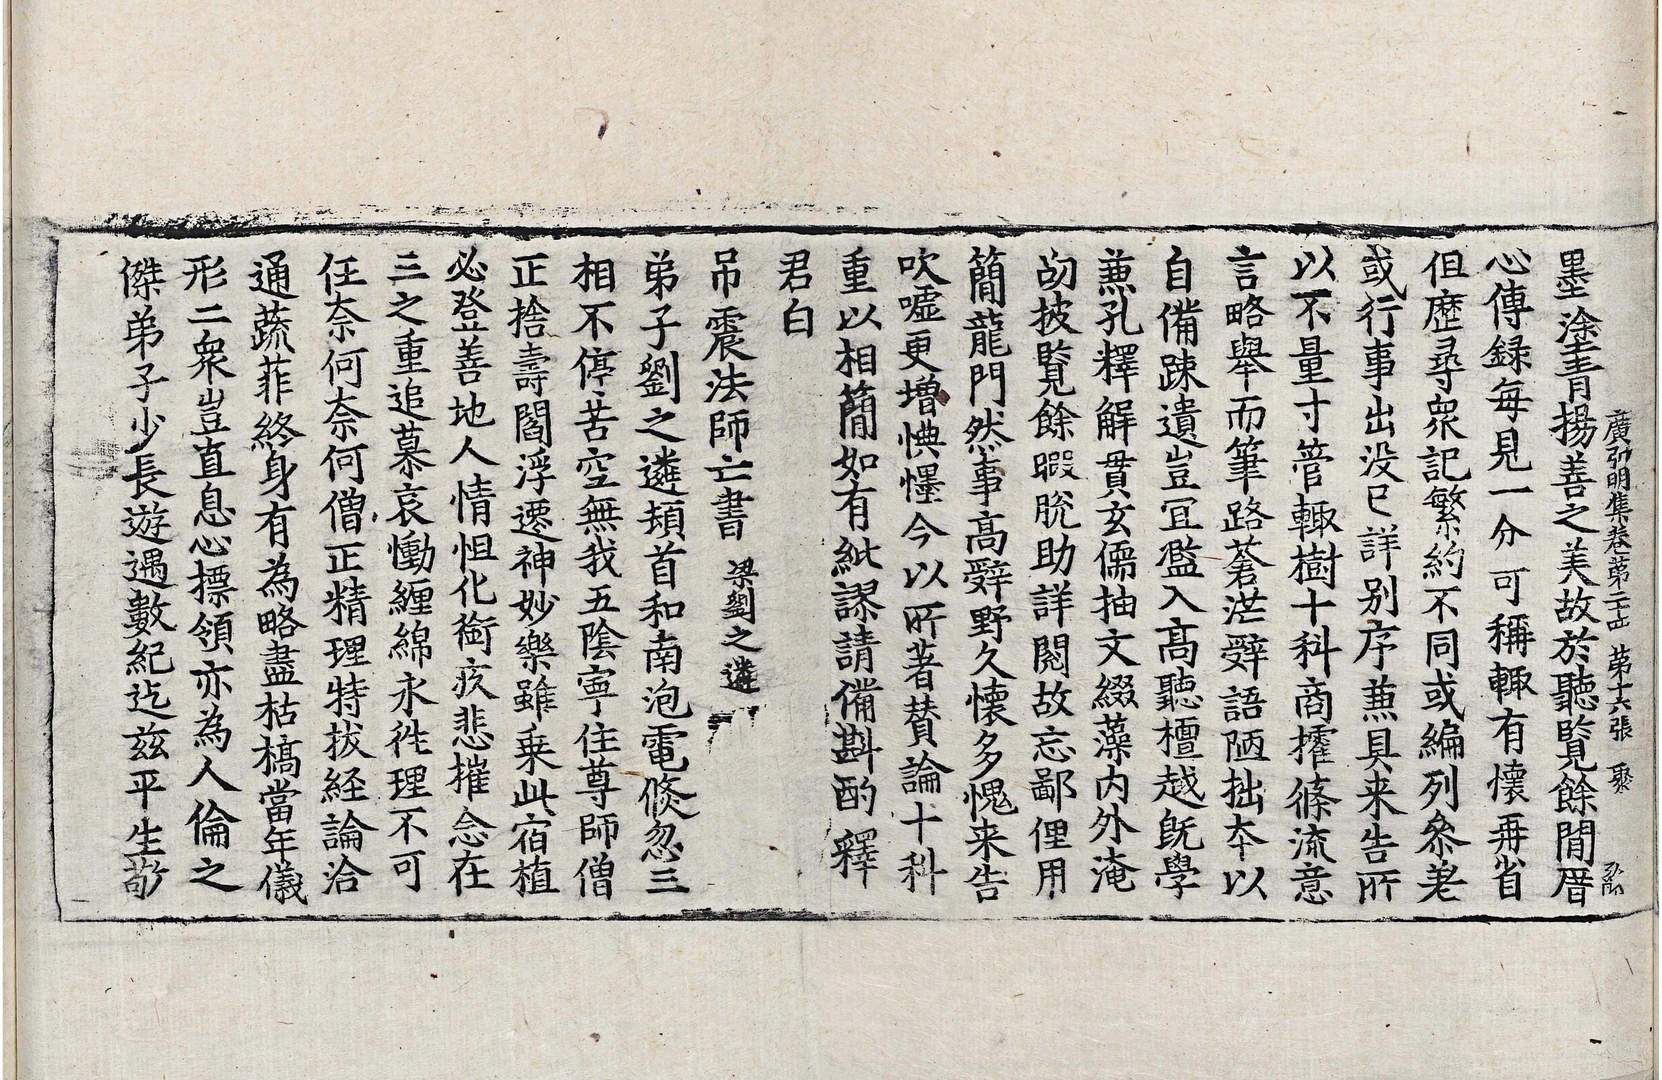 廣弘明集卷第二十四 第十六張 聚
墨塗青揚善之美故於聽覽餘閒厝
心傳録每見一分可稱輙有懷再省
但歷尋衆記繁約不同或編列叅差
或行事出没已詳别序兼具来告所
以不量寸管輙樹十科商攉條流意
言略舉而筆路蒼茫辤語陋拙夲以
自備踈遺豈宜濫入高聽檀越旣學
兼孔釋解貫玄儒抽文綴藻内外淹
劭披覽餘暇脫助詳閱故忘鄙俚用
簡龍門然事高辤野久懐多愧来告
吹嘘更增懊憁今以所著賛論十科
重以相簡如有紕謬請備斟酌釋
君白
吊震法師亡書 梁劉之遴
弟子劉之遴頓首和南泡電倐忽三
相不停苦空無我五陰寕住尊師僧
正捨壽閻浮遷神妙樂雖乗此宿植
必登善地人情怛化衘疚悲摧念在
三之重追慕哀慟纏綿永徃理不可
任奈何奈何僧正精理特拔経論洽
通蔬菲終身有為略盡枯槁當年儀
形二衆豈直息心摽領亦為人倫之
傑弟子少長遊遇數紀迄兹平生敬